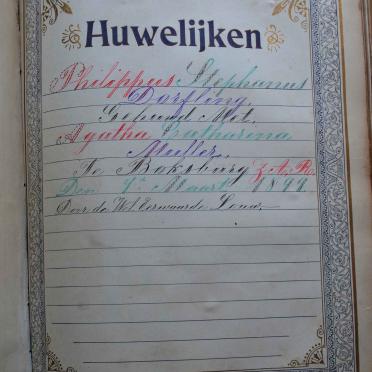 Huwelijken
Philippus Stephanus
Dorfling
Getrouwd Met.
Agatha Catharina
Muller.
Te Boksburg Z.A.R.
Den 7de Maart 1899.
Door de Wl. Eerwaarde